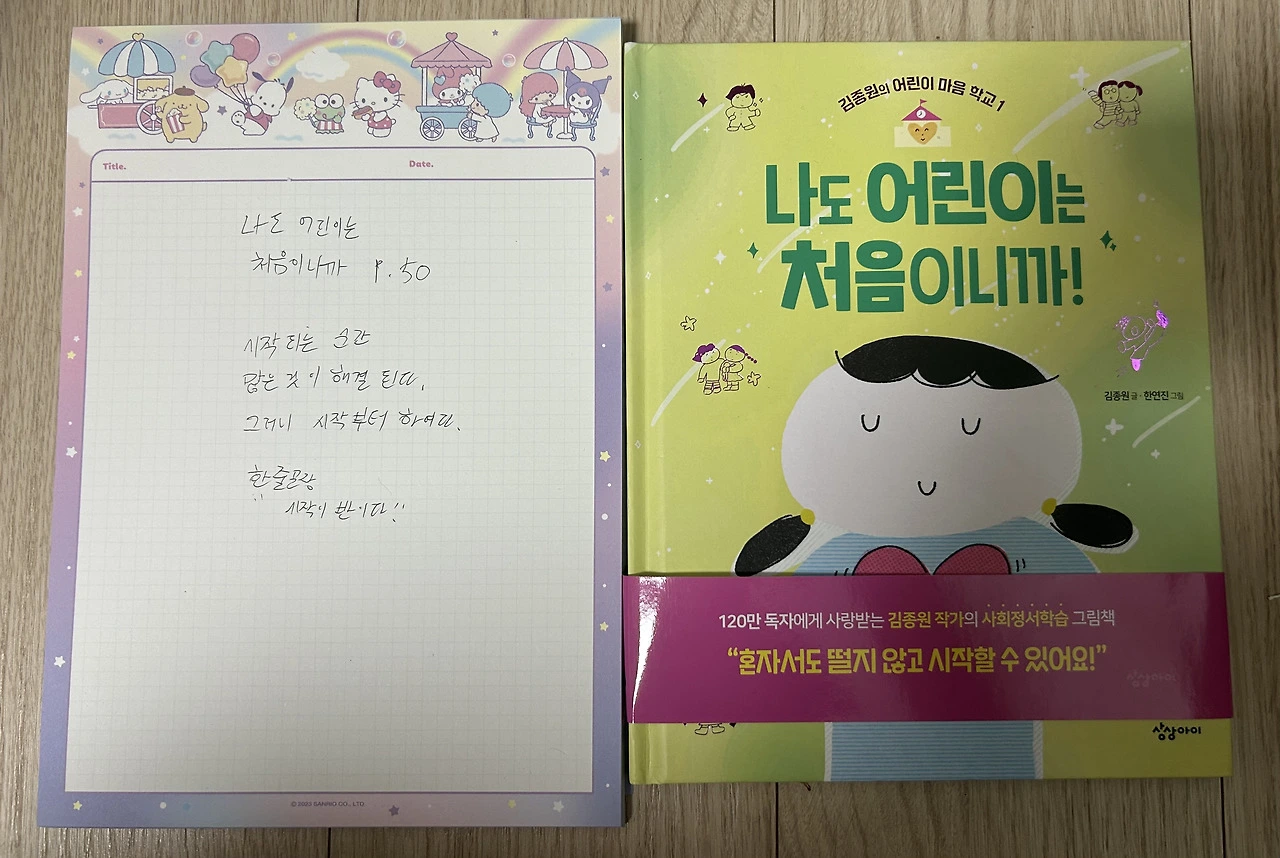 Title.
Date.
나도 어린이는
처음이니까 P.50
시작되는 순간
많은 것이 해결 된다.
그러니 시작부터 하여다.
한줄문장
"시작이 반이다!!
© 2023 SANRIO CO., LTD.
김종원의 어린이 마음 학교 1
나도 어린이는
처음이니까!
김종원 글·한연진 그림
120만 독자에게 사랑받는 김종원 작가의 사회정서학습 그림책
“혼자서도 떨지 않고 시작할 수 있어요!”
상상아이
상상아이